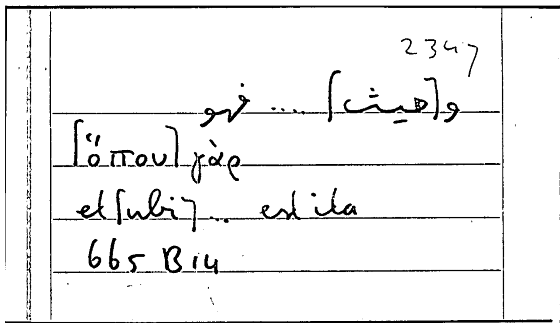 2347
و[حيث] .... فهو
[ὅπου] γὰρ
et [ubi] ... est ita
665 B 14